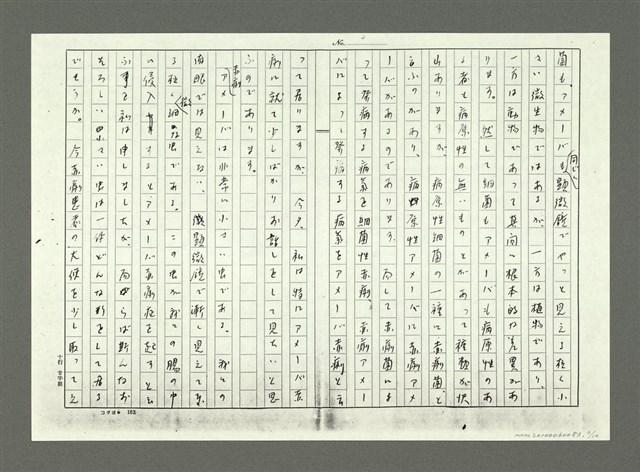 菌も、アメーバも同じく顕微鏡でやっと見える極く小
さい微生物ではあるが、一方は植物であり、
一方は動物であって其間に根本的な差異があ
ります。然して細菌もアメーバも病原性のあ
る者も病原性の無いものとがあって種類が沢
山ありますが、病原性細菌の一種に赤痢菌と
云ふのがあり、病原性アメーバの一種に赤痢アメ
ーバがあるのであります。而して赤痢菌によ
って発病する病気を細菌性赤痢、赤痢アメー
バによって発病する病気をアメーバ赤痢と云
って居ります。今夕、私は特にアメーバ赤
痢に就て少しばかりお話しをして見たいと思
ふのであります。
赤痢アメーバは非常に小さい虫である。我々の
肉眼では見えない、顕微鏡で漸く見えて来
る程の微細な虫である。この虫が我々の腸の中
に侵入するとアメーバ赤痢症を起すと云
ふ事を私は申しましたが、而らば斯んなお
そろしい小さい虫は一体どんな形をして居る
でせうか。今赤痢患者の大便を少し取ってス
十行 廿字詰
コクヨ 163
No.